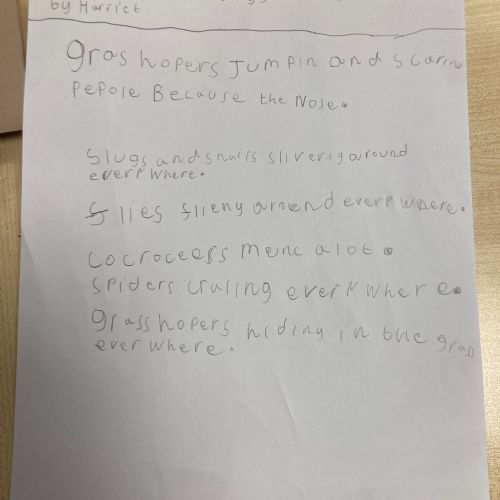 by Harriet
grashopers Jumpin and scaring
pepole Because the Nose.
Slugs and snails sliverig around
everywhere.
flies flieny around everywhere.
cocroceers menc alot.
spiders craling everywhere.
grasshopers hiding in the grass
everwhere.